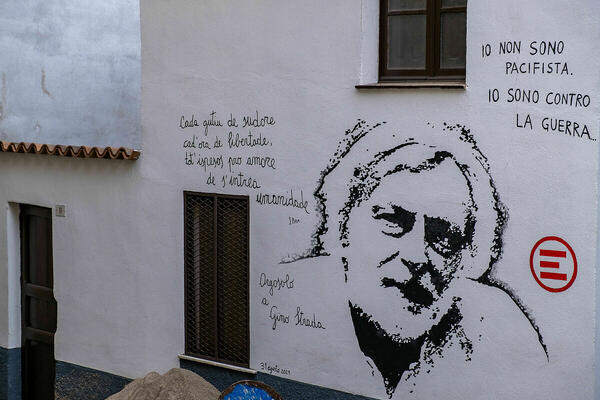 Cada gutiu de sudore
cad'ora de libertade,
tot'ispesos pro amore
de s'intrea
umanidade
IO NON SONO
PACIFISTA.
IO SONO CONTRO
LA GUERRA..
E
Orgosolo
a
Gino Strada
31 agosto 2021